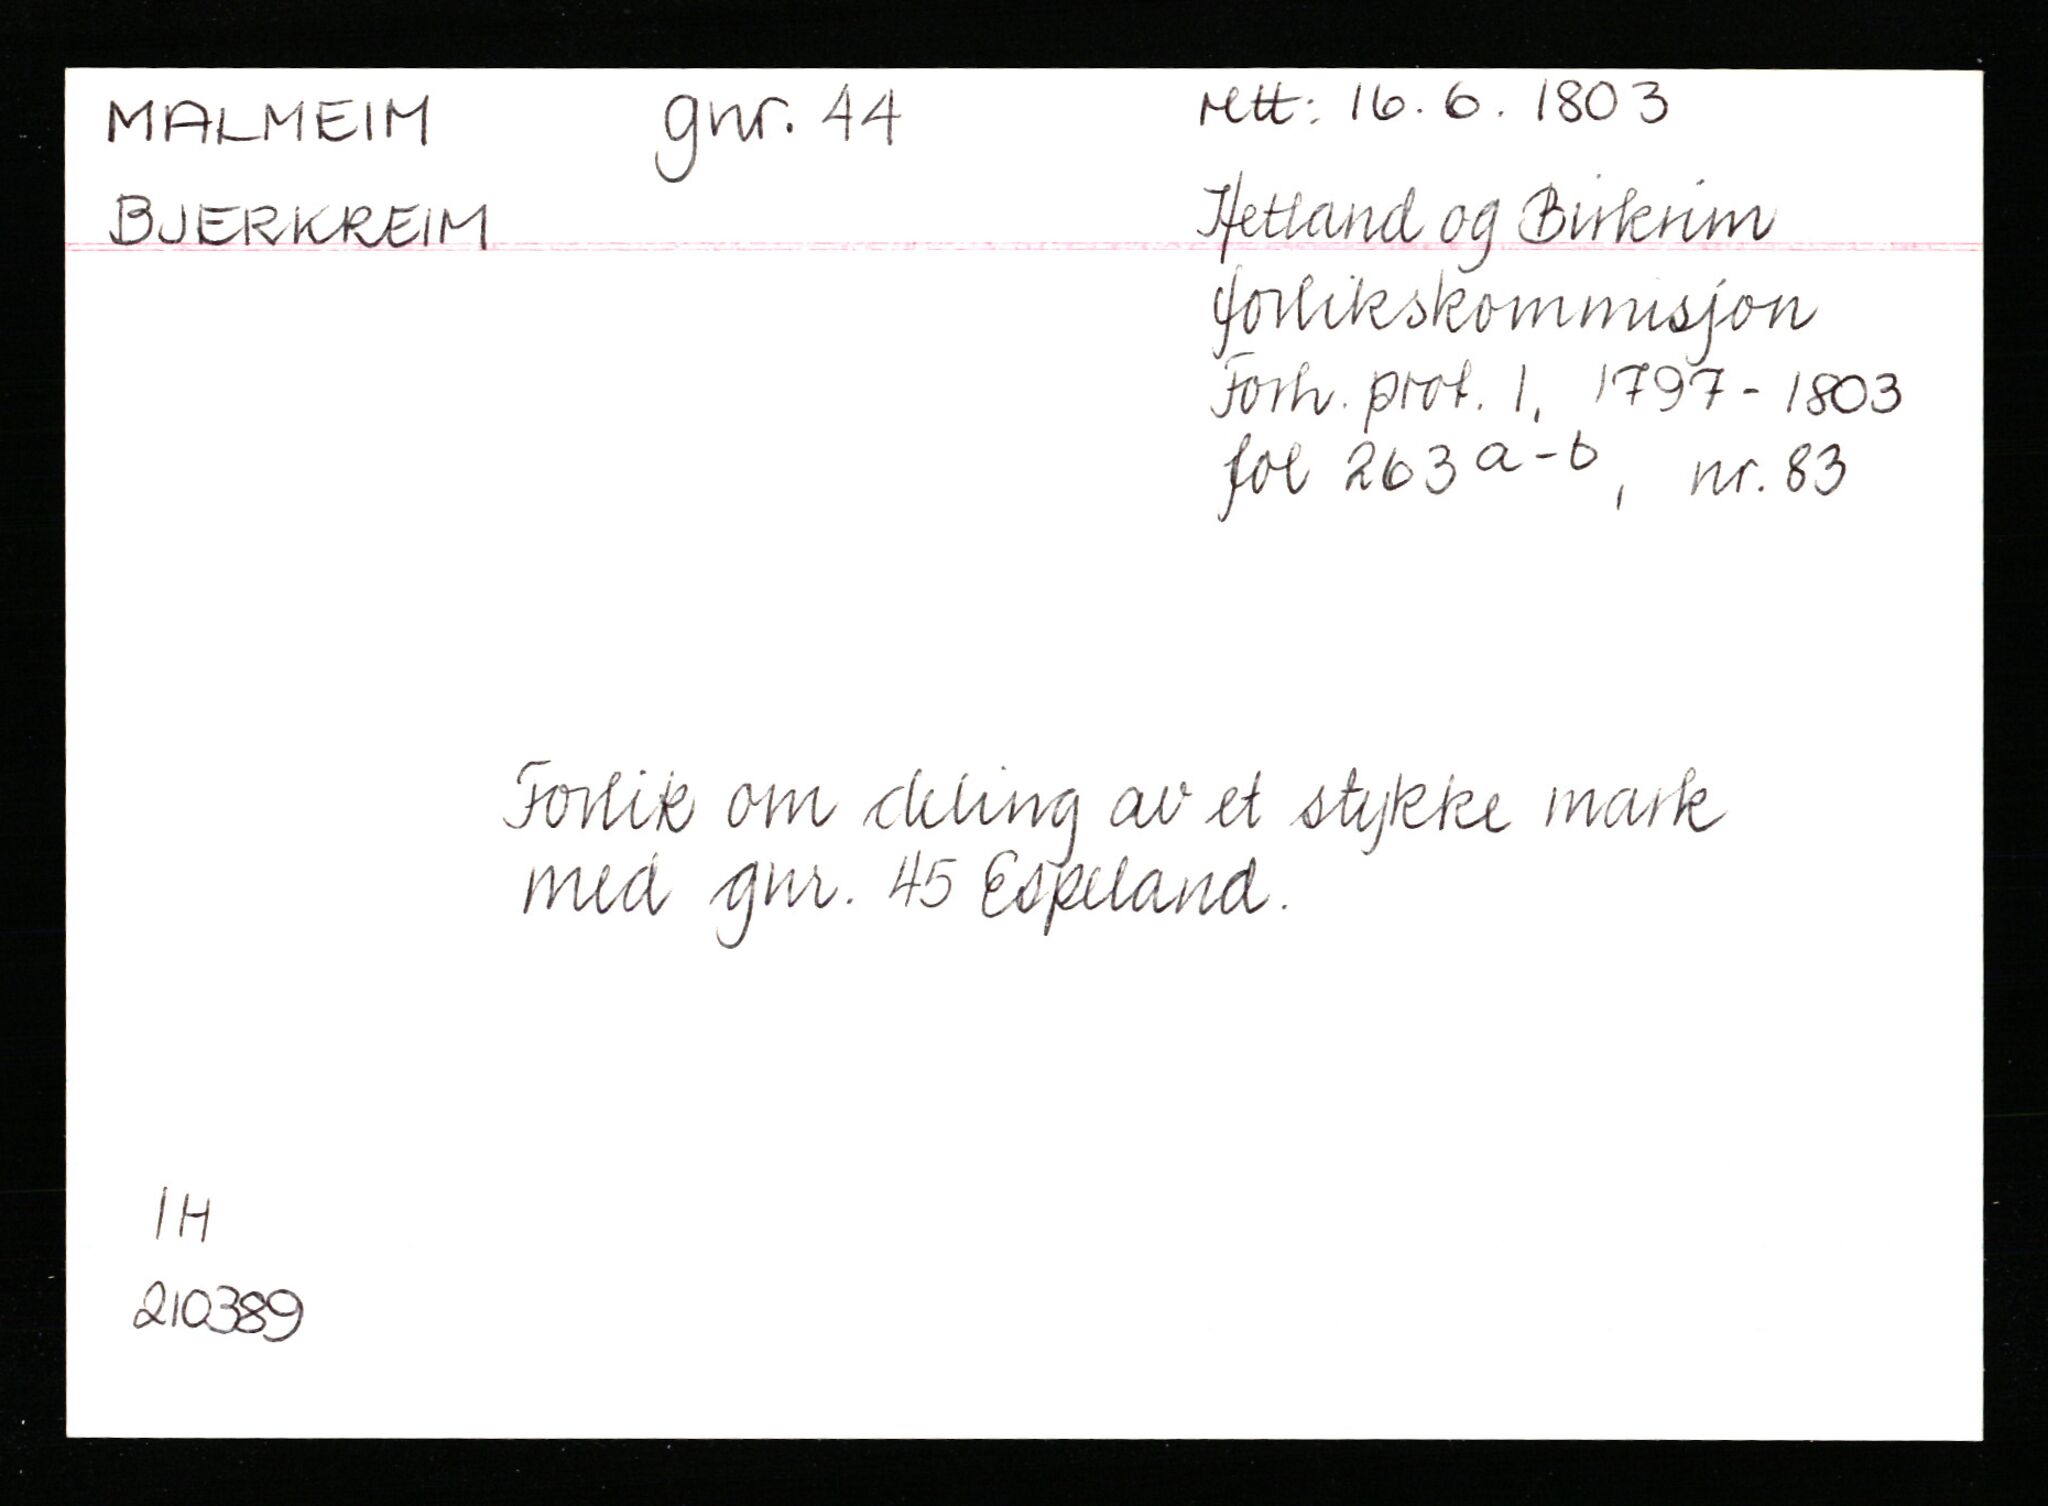 MALMEIM gnr. 44 rett: 16.6.1803
BJERKREIM Hetland og Birkrim
forlikskommisjon
Forh. prot. 1, 1797-1803
fol 263 a-b, nr. 83
Forlik om deling av et stykke mark
med gnr. 45 Espeland.
IH
210389